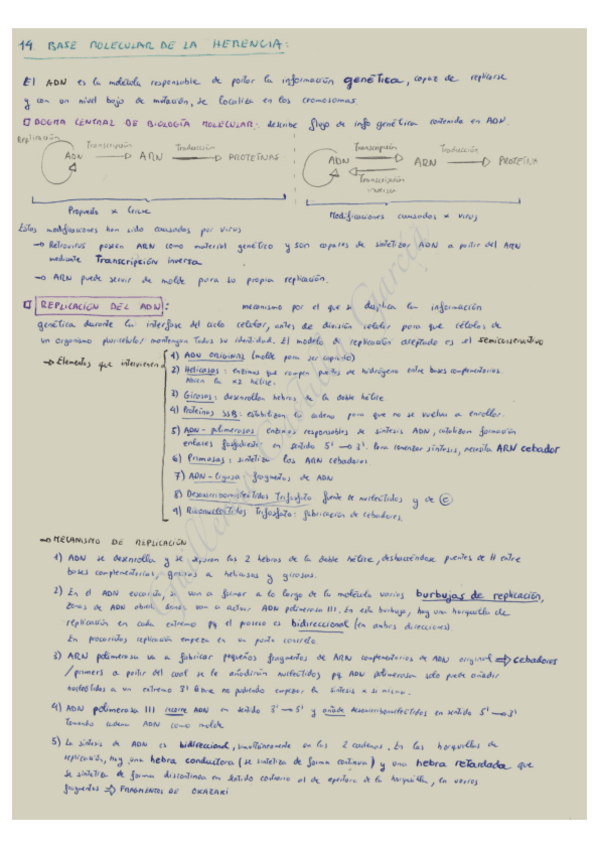 14 BASE MOLECULAR DE LA HERENCIA:
El ADN es la molécula responsable de portar la información genética, capaz de replicarse
y con un nivel bajo de mutación, se localiza en los cromosomas.
DOGMA CENTRAL DE BIOLOGÍA MOLECULAR: describe flujo de info genética contenida en ADN.
Replicación
Transcripción Traducción
ADN ARN PROTEÍNAS
Transcripción Traducción
ADN ARN PROTEÍNA
Transcripción
inversa
Propuesto x Crick
Modificaciones causadas x virus
Estas modificaciones han sido causadas por virus
→ Retrovirus poseen ARN como material genético y son capaces de sintetizar ADN a partir del ARN
mediante Transcripción inversa
→ ARN puede servir de molde para su propia replicación.
REPLICACIÓN DEL ADN: mecanismo por el que se duplica la información
genética durante la interfase del ciclo celular, antes de división celular para que células de
un organismo pluricelular mantengan todas su identidad. El modelo de replicación aceptado es el semiconservativo
→ Elementos que intervienen
1) ADN ORIGINAL (molde para ser copiado)
2) Helicasas: enzimas que rompen puentes de hidrógeno entre bases complementarias.
Abren la x2 hélice.
3) Girasas: desenrollan hebras de la doble hélice
4) Proteínas SSB: estabilizan la cadena para que no se vuelva a enrollar.
5) ADN-polimerasas: enzimas responsables de síntesis ADN, catalizan formación
enlaces fosfodiester en sentido 5' → 3'. Para comenzar síntesis, necesita ARN cebador
6) Primasas: sintetiza los ARN cebadores
7) ADN-ligasa: fragmentos de ADN
8) Desoxirribonucleótidos Trifosfato: fuente de nucleótidos y de
9) Ribonucleótidos Trifosfato: fabricación de cebadores.
→ MECANISMO DE REPLICACIÓN
1) ADN se desenrolla y se separan las 2 hebras de la doble hélice, deshaciéndose puentes de H entre
bases complementarias, gracias a helicasas y girasas.
2) En el ADN eucariota, se van a formar a lo largo de la molécula varias burbujas de replicación,
zonas de ADN abierto donde van a actuar ADN polimerasa III. En esta burbuja, hay una horquilla de
replicación en cada extremo pq el proceso es bidireccional (en ambas direcciones).
En procariotas replicación empieza en un punto concreto
3) ARN polimerasa va a fabricar pequeños fragmentos de ARN complementarios de ADN original ⇒ cebadores
/primers a partir del cual se le añadirán nucleótidos pq ADN polimerasa solo puede añadir
nucleótidos a un extremo 3' libre no pudiendo empezar la síntesis x si misma.
4) ADN polimerasa III recorre ADN en sentido 3' → 5' y añade desoxirribonucleótidos en sentido 5' → 3'
Tomando cadena ADN como molde
5) La síntesis de ADN es bidireccional, simultáneamente en las 2 cadenas. En las horquillas de
replicación, hay una hebra conductora (se sintetiza de forma continua) y una hebra retardada que
se sintetiza de forma discontinua en sentido contrario al de apertura de la horquilla, en varios
fragmentos ⇒ FRAGMENTOS DE OKAZAKI